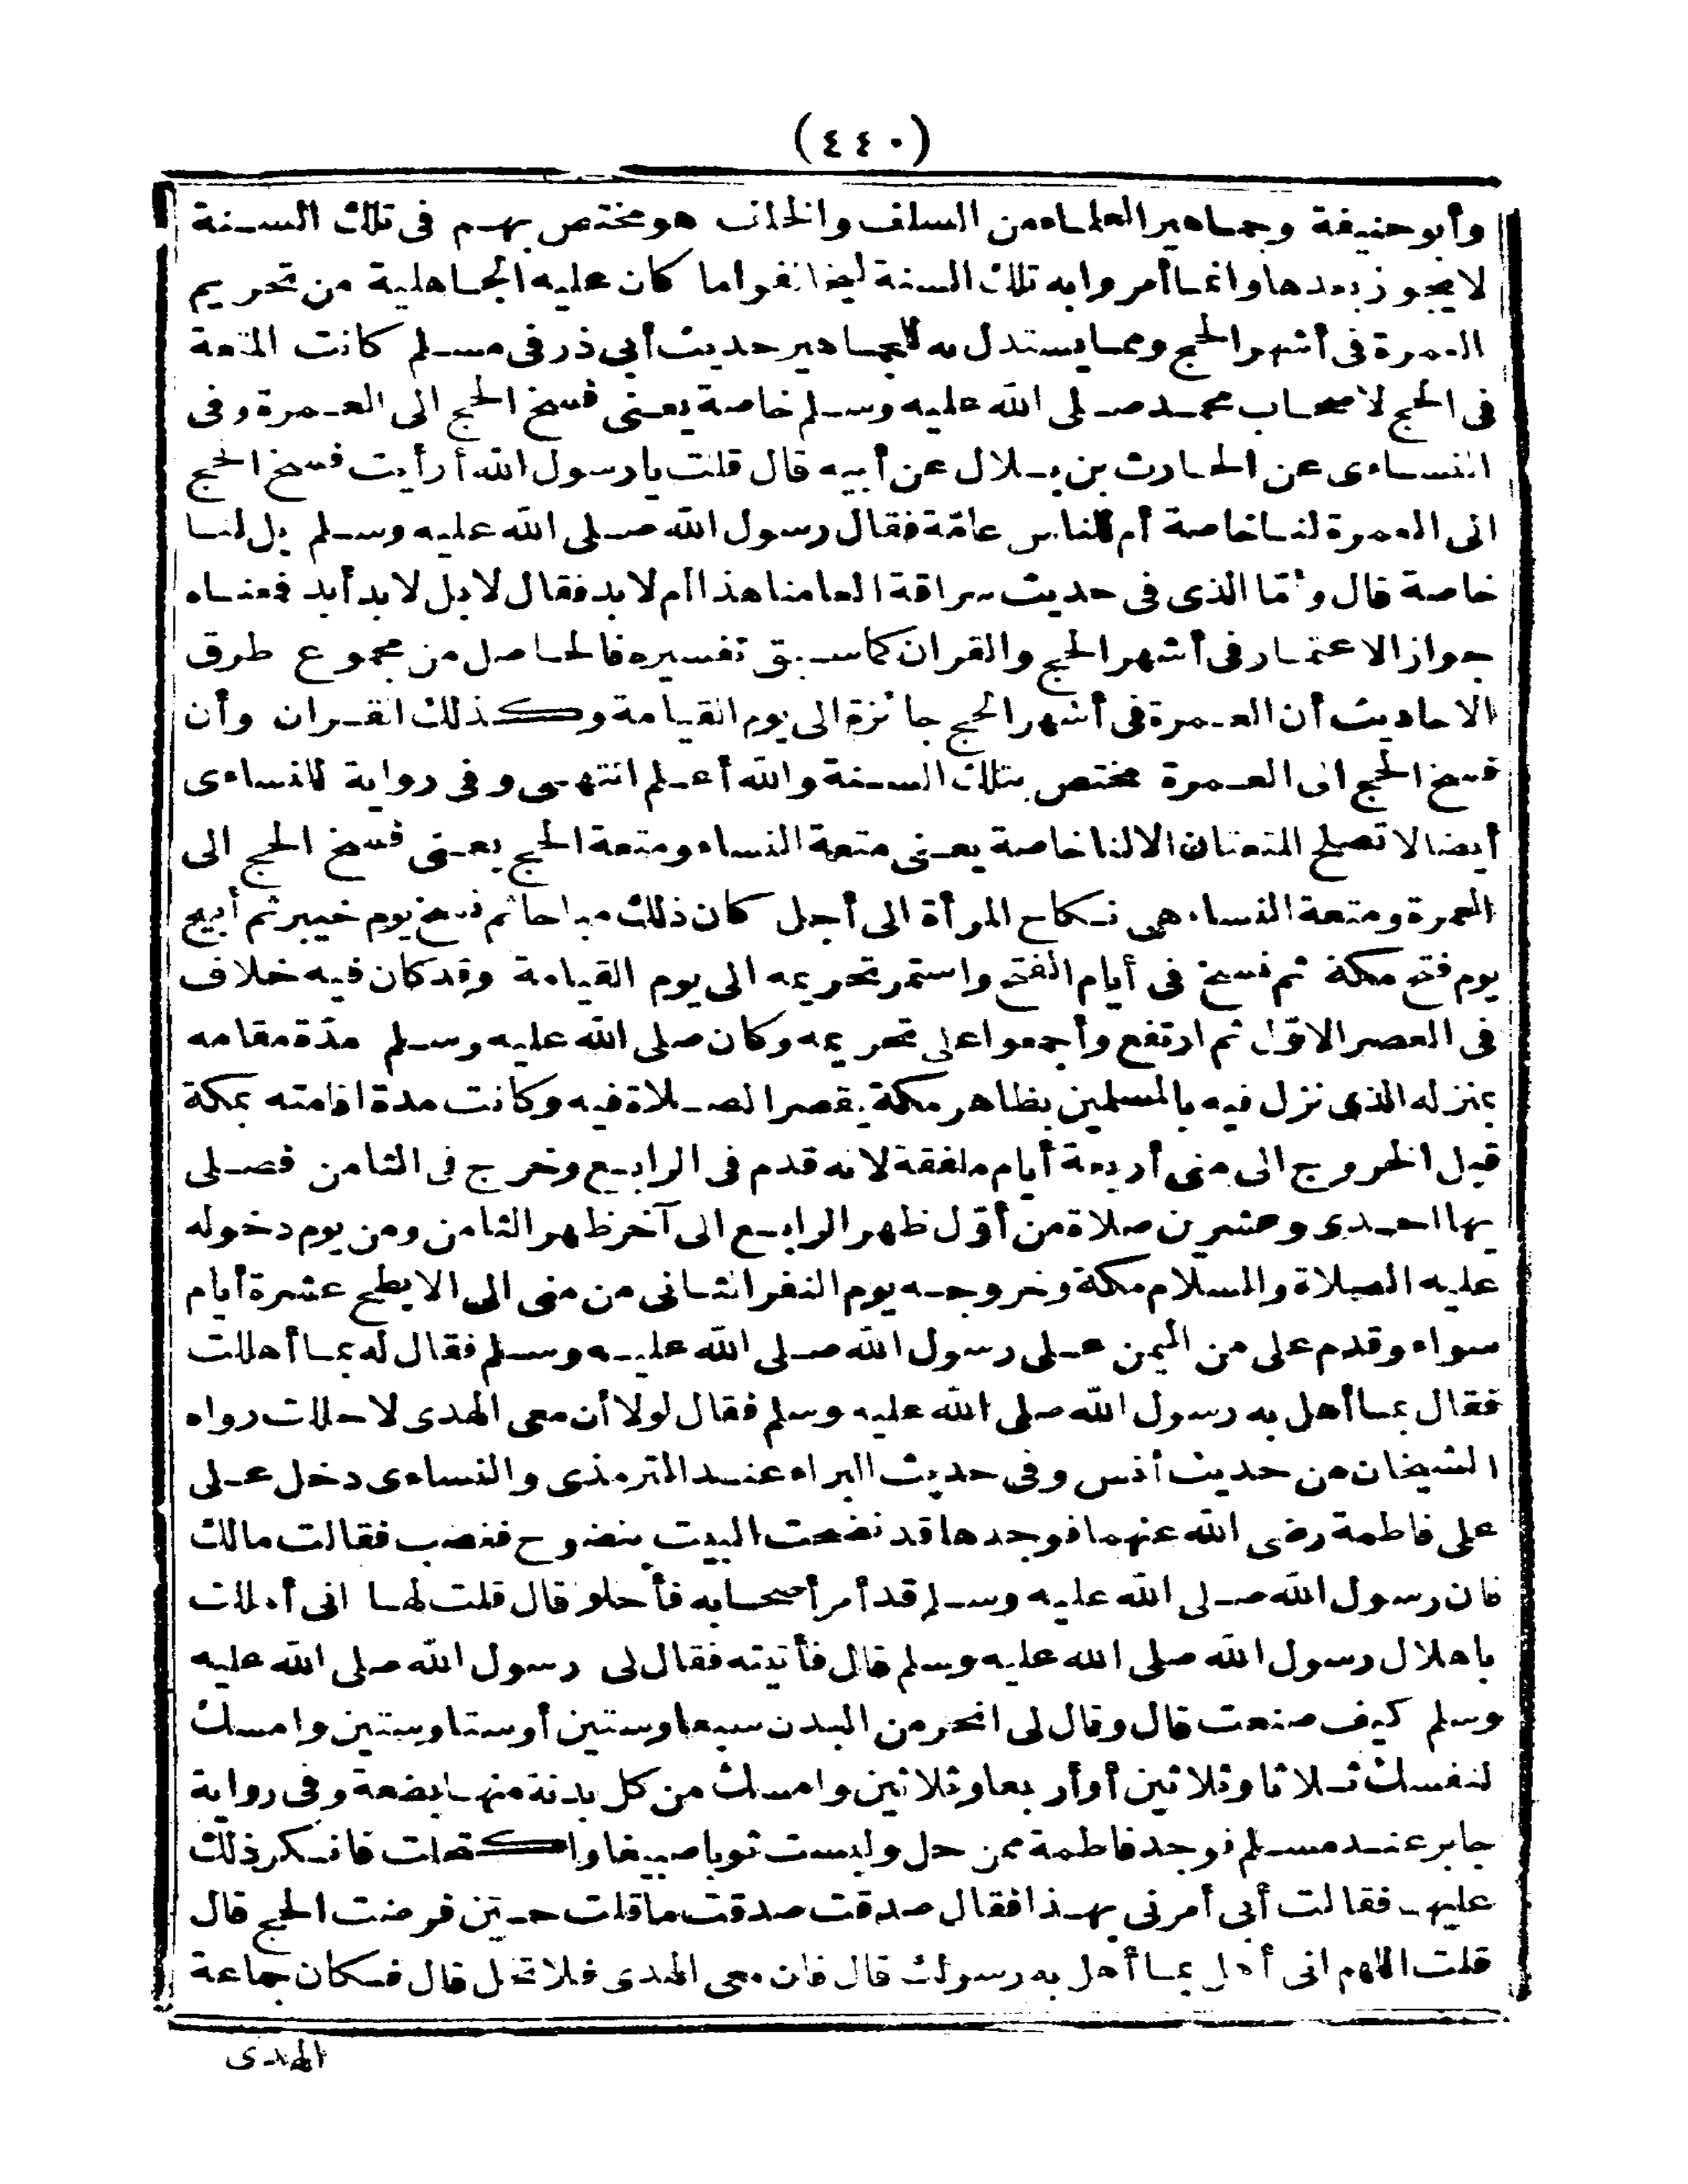 (٤٤٠)
وأبو حنيفة وجماهير العلماء من السلف والخلف هو مختص بهم فى تلك السنة
لا يجوز بعدها وانما أمروا به تلك السنة ليخالفوا ما كان عليه الجاهلية من تحريم
العمرة فى أشهر الحج ومما يستدل به للجماهير حديث أبى ذر فى مسلم كانت المتعة
فى الحج لاصحاب محمد صلى الله عليه وسلم خاصة يعنى فسخ الحج الى العمرة وفى
النساءى عن الحارث بن بلال عن أبيه قال قلت يا رسول الله أرأيت فسخ الحج
الى العمرة لنا خاصة أم للناس عامّة فقال رسول الله صلى الله عليه وسلم بل لنا
خاصة قال وأمّا الذى فى حديث سراقة ألعامنا هذا أم لابد فقال لا بل لابد أبد فمعناه
جواز الاعتمار فى أشهر الحج والقران كما سبق تفسيره فالحاصل من مجموع طرق
الاحاديث أن العمرة فى أشهر الحج جائزة الى يوم القيامة وكذلك القران وأن
فسخ الحج الى العمرة مختص بتلك السنة والله أعلم انتهى وفى رواية للنساءى
أيضا لا تصلح المتعتان الا لنا خاصة يعنى متعة النساء ومتعة الحج يعنى فسخ الحج الى
العمرة ومتعة النساء هى نكاح المرأة الى أجل كان ذلك مباحا ثم نسخ يوم خيبر ثم أبيح
يوم فتح مكة ثم نسخ فى أيام الفتح واستمر تحريمه الى يوم القيامة وقد كان فيه خلاف
فى العصر الاوّل ثم ارتفع وأجمعوا على تحريمه وكان صلى الله عليه وسلم مدّة مقامه
بمنزله الذى نزل فيه بالمسلمين بظاهر مكة يقصر الصلاة فيه وكانت مدة اقامته بمكة
قبل الخروج الى منى أربعة أيام ملفقة لانه قدم فى الرابع وخرج فى الثامن فصلى
بها احدى وعشرين صلاة من أوّل ظهر الرابع الى آخر ظهر الثامن ومن يوم دخوله
عليه الصلاة والسلام مكة وخروجه يوم النفر الثانى من منى الى الابطح عشرة أيام
سواء وقدم على من اليمن على رسول الله صلى الله عليه وسلم فقال له بما أهللت
فقال بما أهل به رسول الله صلى الله عليه وسلم فقال لولا أن معى الهدى لاحللت رواه
الشيخان من حديث أنس وفى حديث البراء عند الترمذى والنساءى دخل على
على فاطمة رضى الله عنهما فوجدها قد نضحت البيت بنضوح فغضب فقالت مالك
فان رسول الله صلى الله عليه وسلم قد أمر أصحابه فأحلو قال قلت لها انى أهللت
باهلال رسول الله صلى الله عليه وسلم قال فأتيته فقال لى رسول الله صلى الله عليه
وسلم كيف صنعت قال وقال لى انحر من البدن سبعا وستين أو ستا وستين وامسك
لنفسك ثلاثا وثلاثين أو أربعا وثلاثين وامسك من كل بدنة منها بضعة وفى رواية
جابر عند مسلم فوجد فاطمة ممن حل ولبست ثوبا صبيغا واكتحلت فانكر ذلك
عليها فقالت أبى أمرنى بهذا فقال صدقت صدقت ما قلت حين فرضت الحج قال
قلت اللهم انى أهل بما أهل به رسولك قال فان معى الهدى فلا تحل قال فكان جماعة
الهدى